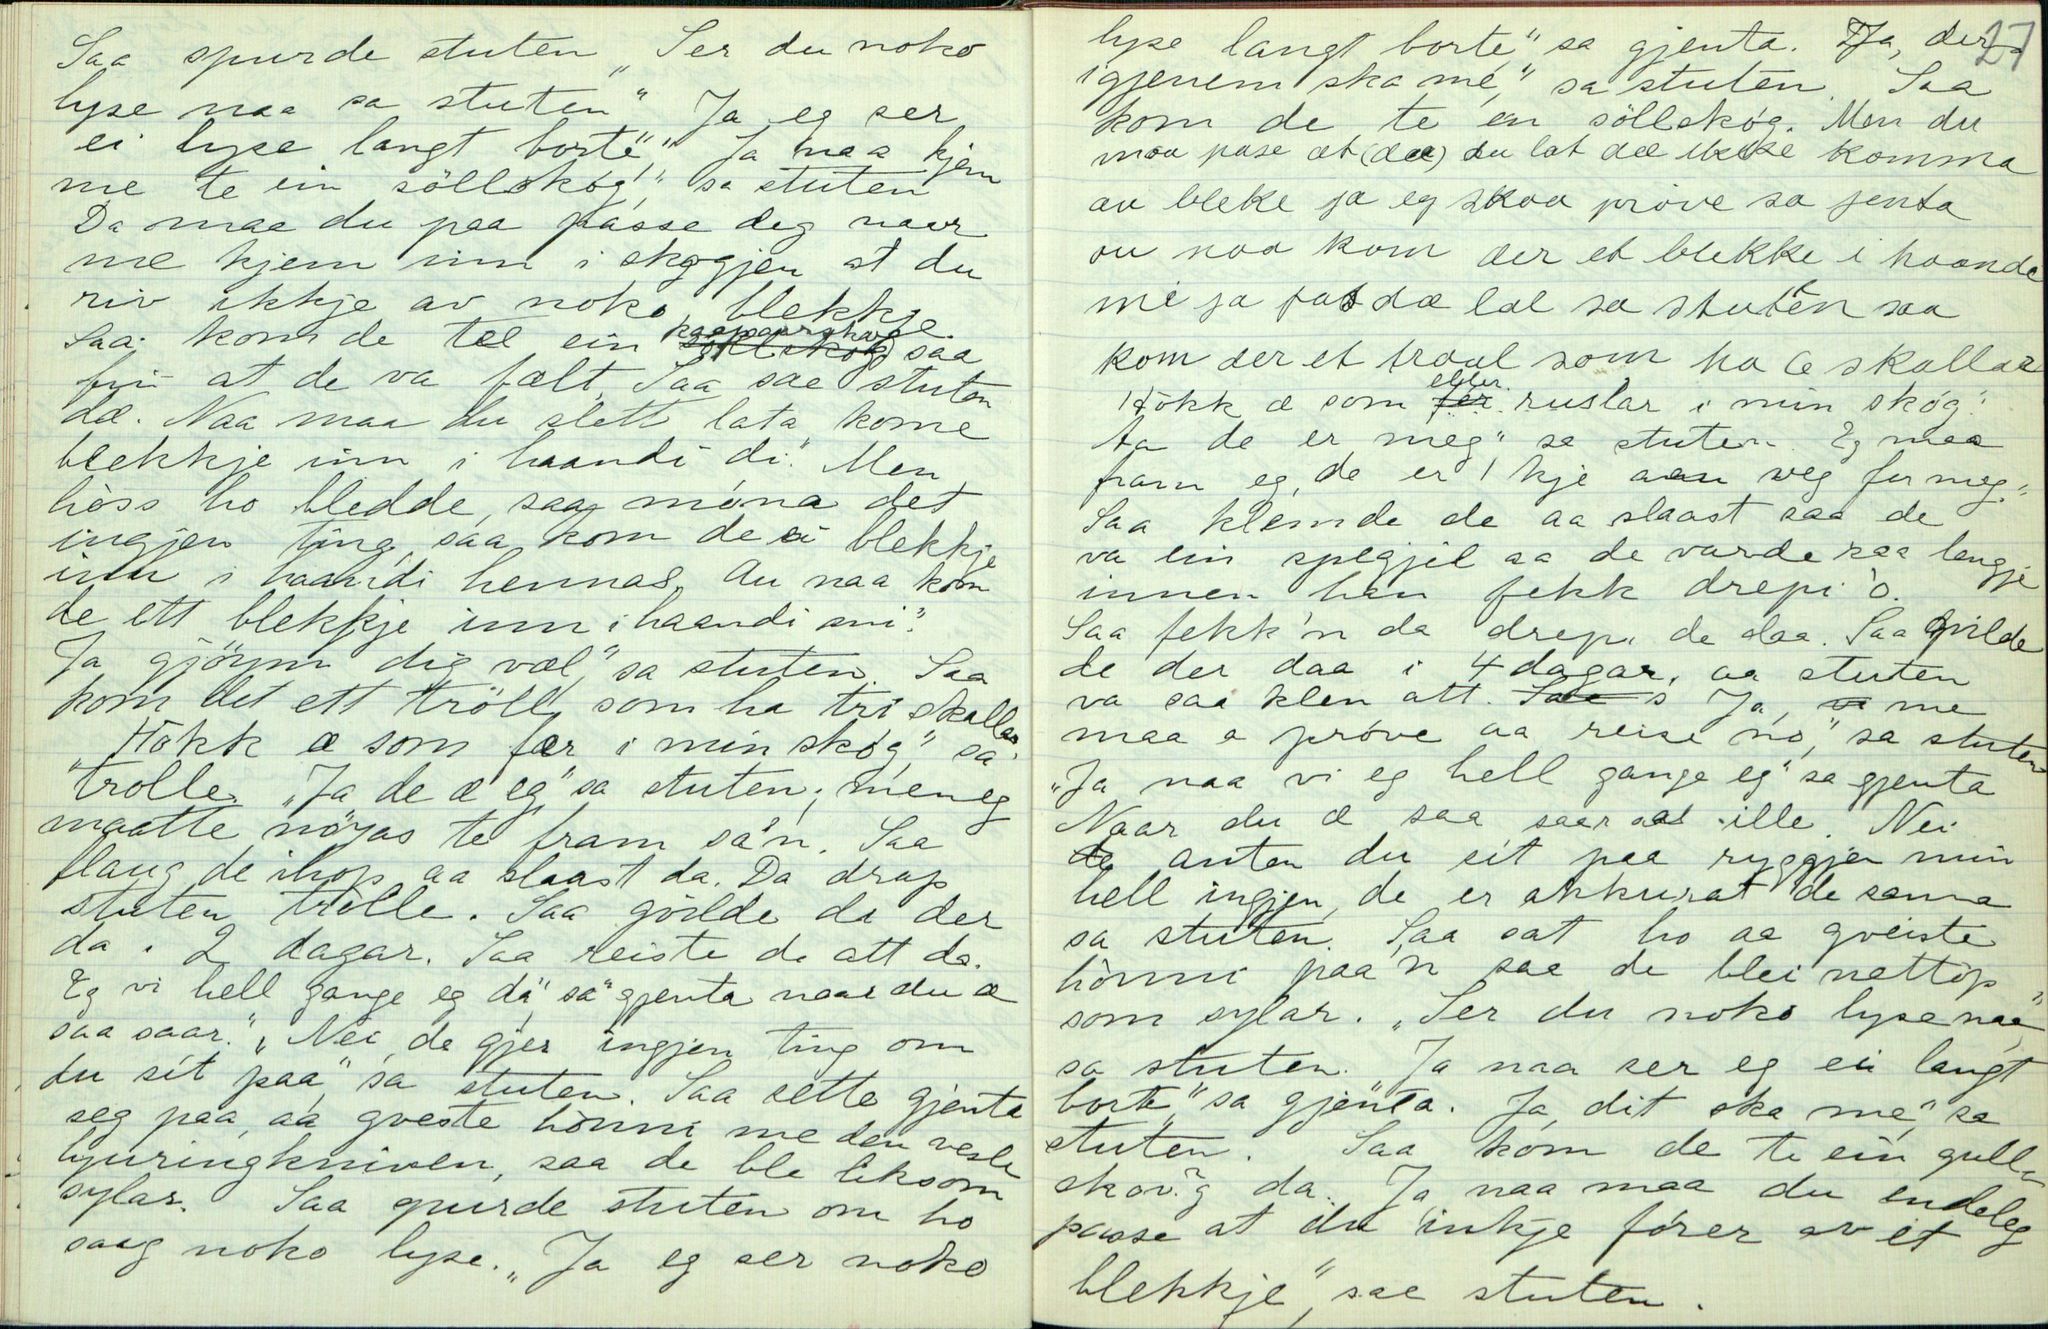 Saa spurde stuten „Ser du noko
lyse naa sa stuten" Ja eg ser
ei lyse langt borte", „Ja naa kjem
me te ein söllskóg", sa stuten
Da maa du paa passe deg naar
me kjem inn i skogjen at du
riv ikkje av noko blekkje.
Saa kom de tel ein saa
fin at de va fælt, Saa sae stuten
dæ. Naa maa du slett lata kome
blekkje inn i haandi di." Men
höss ho bledde, saa móna det
ingjen ting, saa kom de ei blekkje
inn i haandi hennas. Au naa kom
de ett blekkje inn i haandi mi".
Ja gjöym dig væl", sa stuten. Saa
kom det ett tröll, som ha tri skallar
„Hökk æ som fær i min skóg," sa
trolle. „Ja de æ eg" sa stuten; men eg
maatte nöyas te fram sa'n. Saa
flaug de ihop aa slaast da. Da drap
stuten trölle. Saa gvilde de der
da i 2 dagar. Saa reiste de att da.
Eg vi hell gange eg da", sa gjenta naar du æ
saa saar." „Nei de gjer ingjen ting om
du sit paa", sa stuten. Saa sette gjenta
seg paa, aa gveste hönni me den vesle
ljuringkniven, saa de ble liksom
sylar. Saa spurde stuten om ho
saag noko lyse. „Ja eg ser noko
27
lyse langt borte," sa gjenta. Ja, der
igjenem ska me," sa stuten. Saa
kom de te en söllskóg. Men du
maa pase at (dæ) du lat dæ ikke komma
av bleke ja eg skaa pröve sa jenta
au naa kom der et blekke i haande
mi ja fat dæ lal sa stuten saa
kom der et traal som ha 6 skallar
Hökk æ som eller ruslar i min skóg".
Aa de er meg," sa stuten. Eg maa
fram eg, de er 'kje aan veg for meg."
Saa klemde de aa slaast saa de
va ein spegjil aa de varde saa lengje
innen han fekk drepi 'o.
Saa fekk'n da drepi de daa. Saa gvilde
de der daa i 4 dagar, aa stuten
va saa klen att. Ja, me
maa a pröve aa reise no," sa stuten
„Ja naa vi eg hell gange eg" sa gjenta
Naar du æ saa saar aa ille. Nei
anten du sit paa ryggjen min
hell ingjen, de er akkurat de sama
sa stuten. Saa sat ho aa gveiste
hönni paa'n saa de blei nettöp
som sylar. „Ser du noko lyse naa",
sa stuten. Ja naa ser eg ei langt
borte," sa gjenta. Ja, dit ska me", sa
stuten. Saa kom de te ein gull-
skóvg da. Ja naa maa du endeleg
passe at du inkje fórer av et
blekkje", sae stuten.